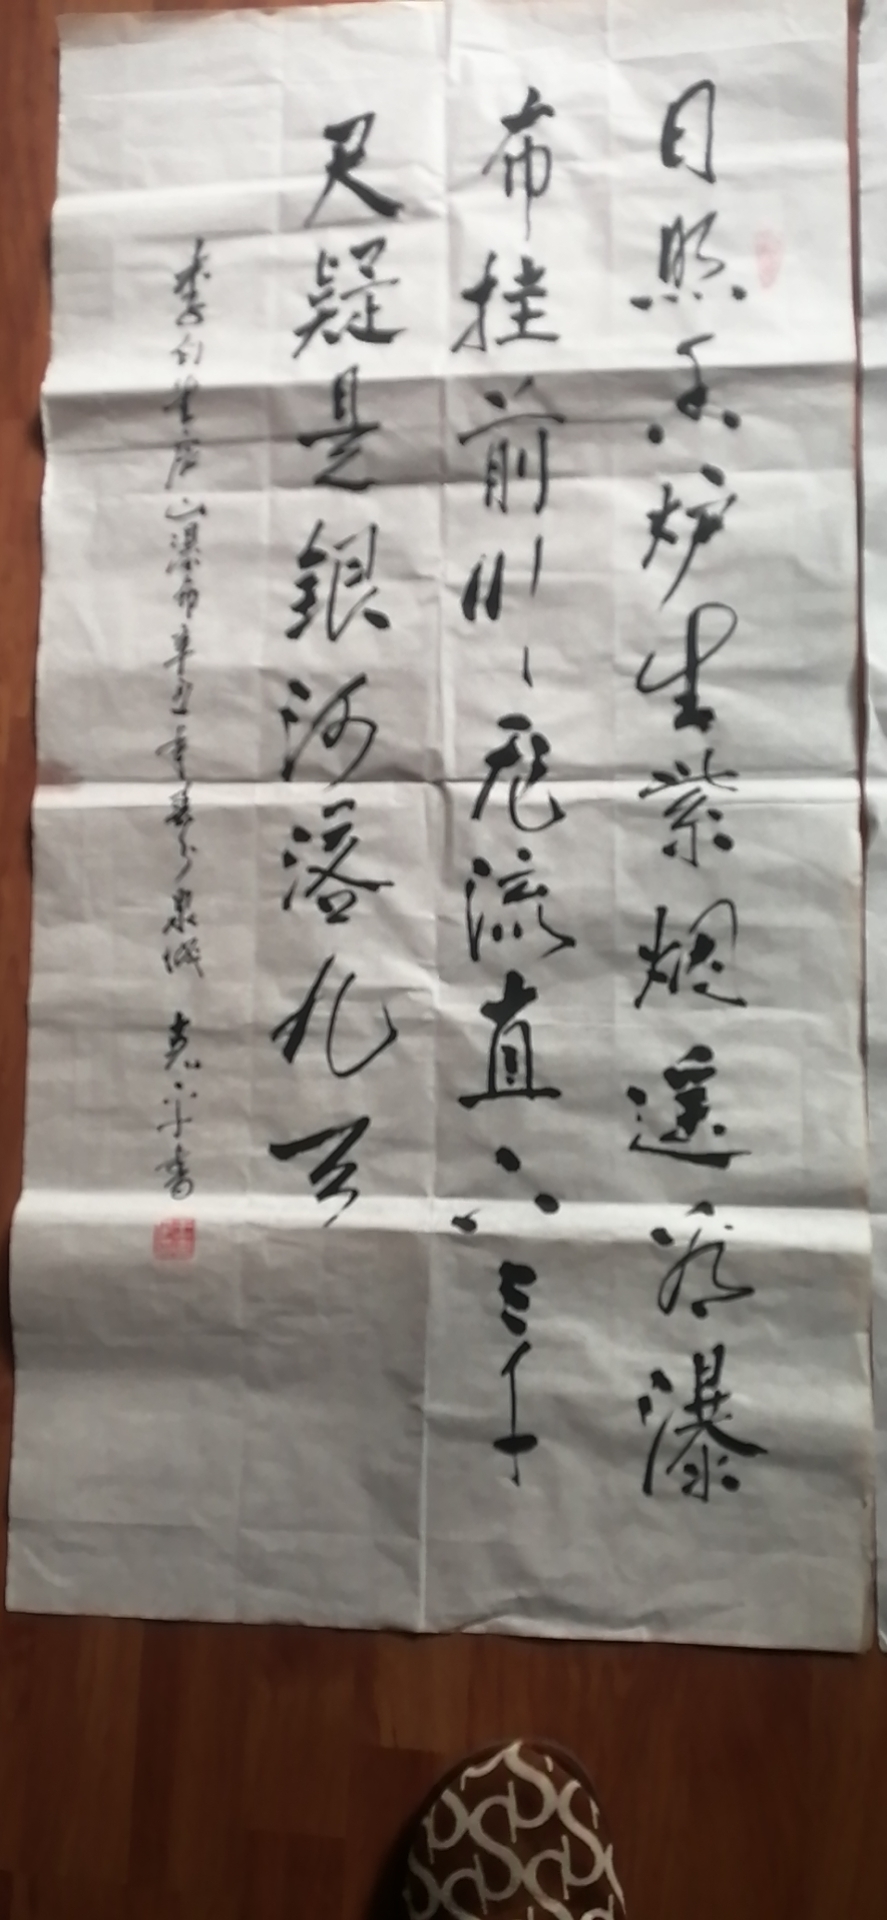 日照香炉生紫烟遥看瀑
布挂前川飞流直下三千
尺疑是銀河落九天
李白望庐山瀑布辛丑年夏于泉城 克平书